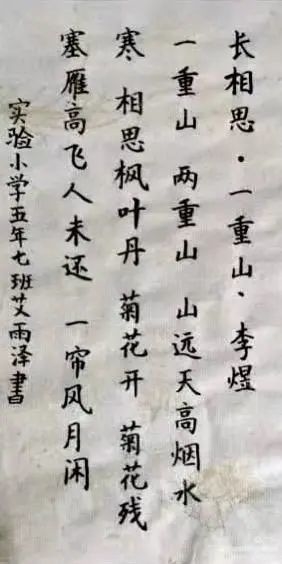 长相思·一重山、李煜
一重山 两重山 山远天高烟水
寒 相思枫叶丹 菊花开 菊花残
塞雁高飞人未还 一帘风月闲
实验小学五年七班艾雨泽書